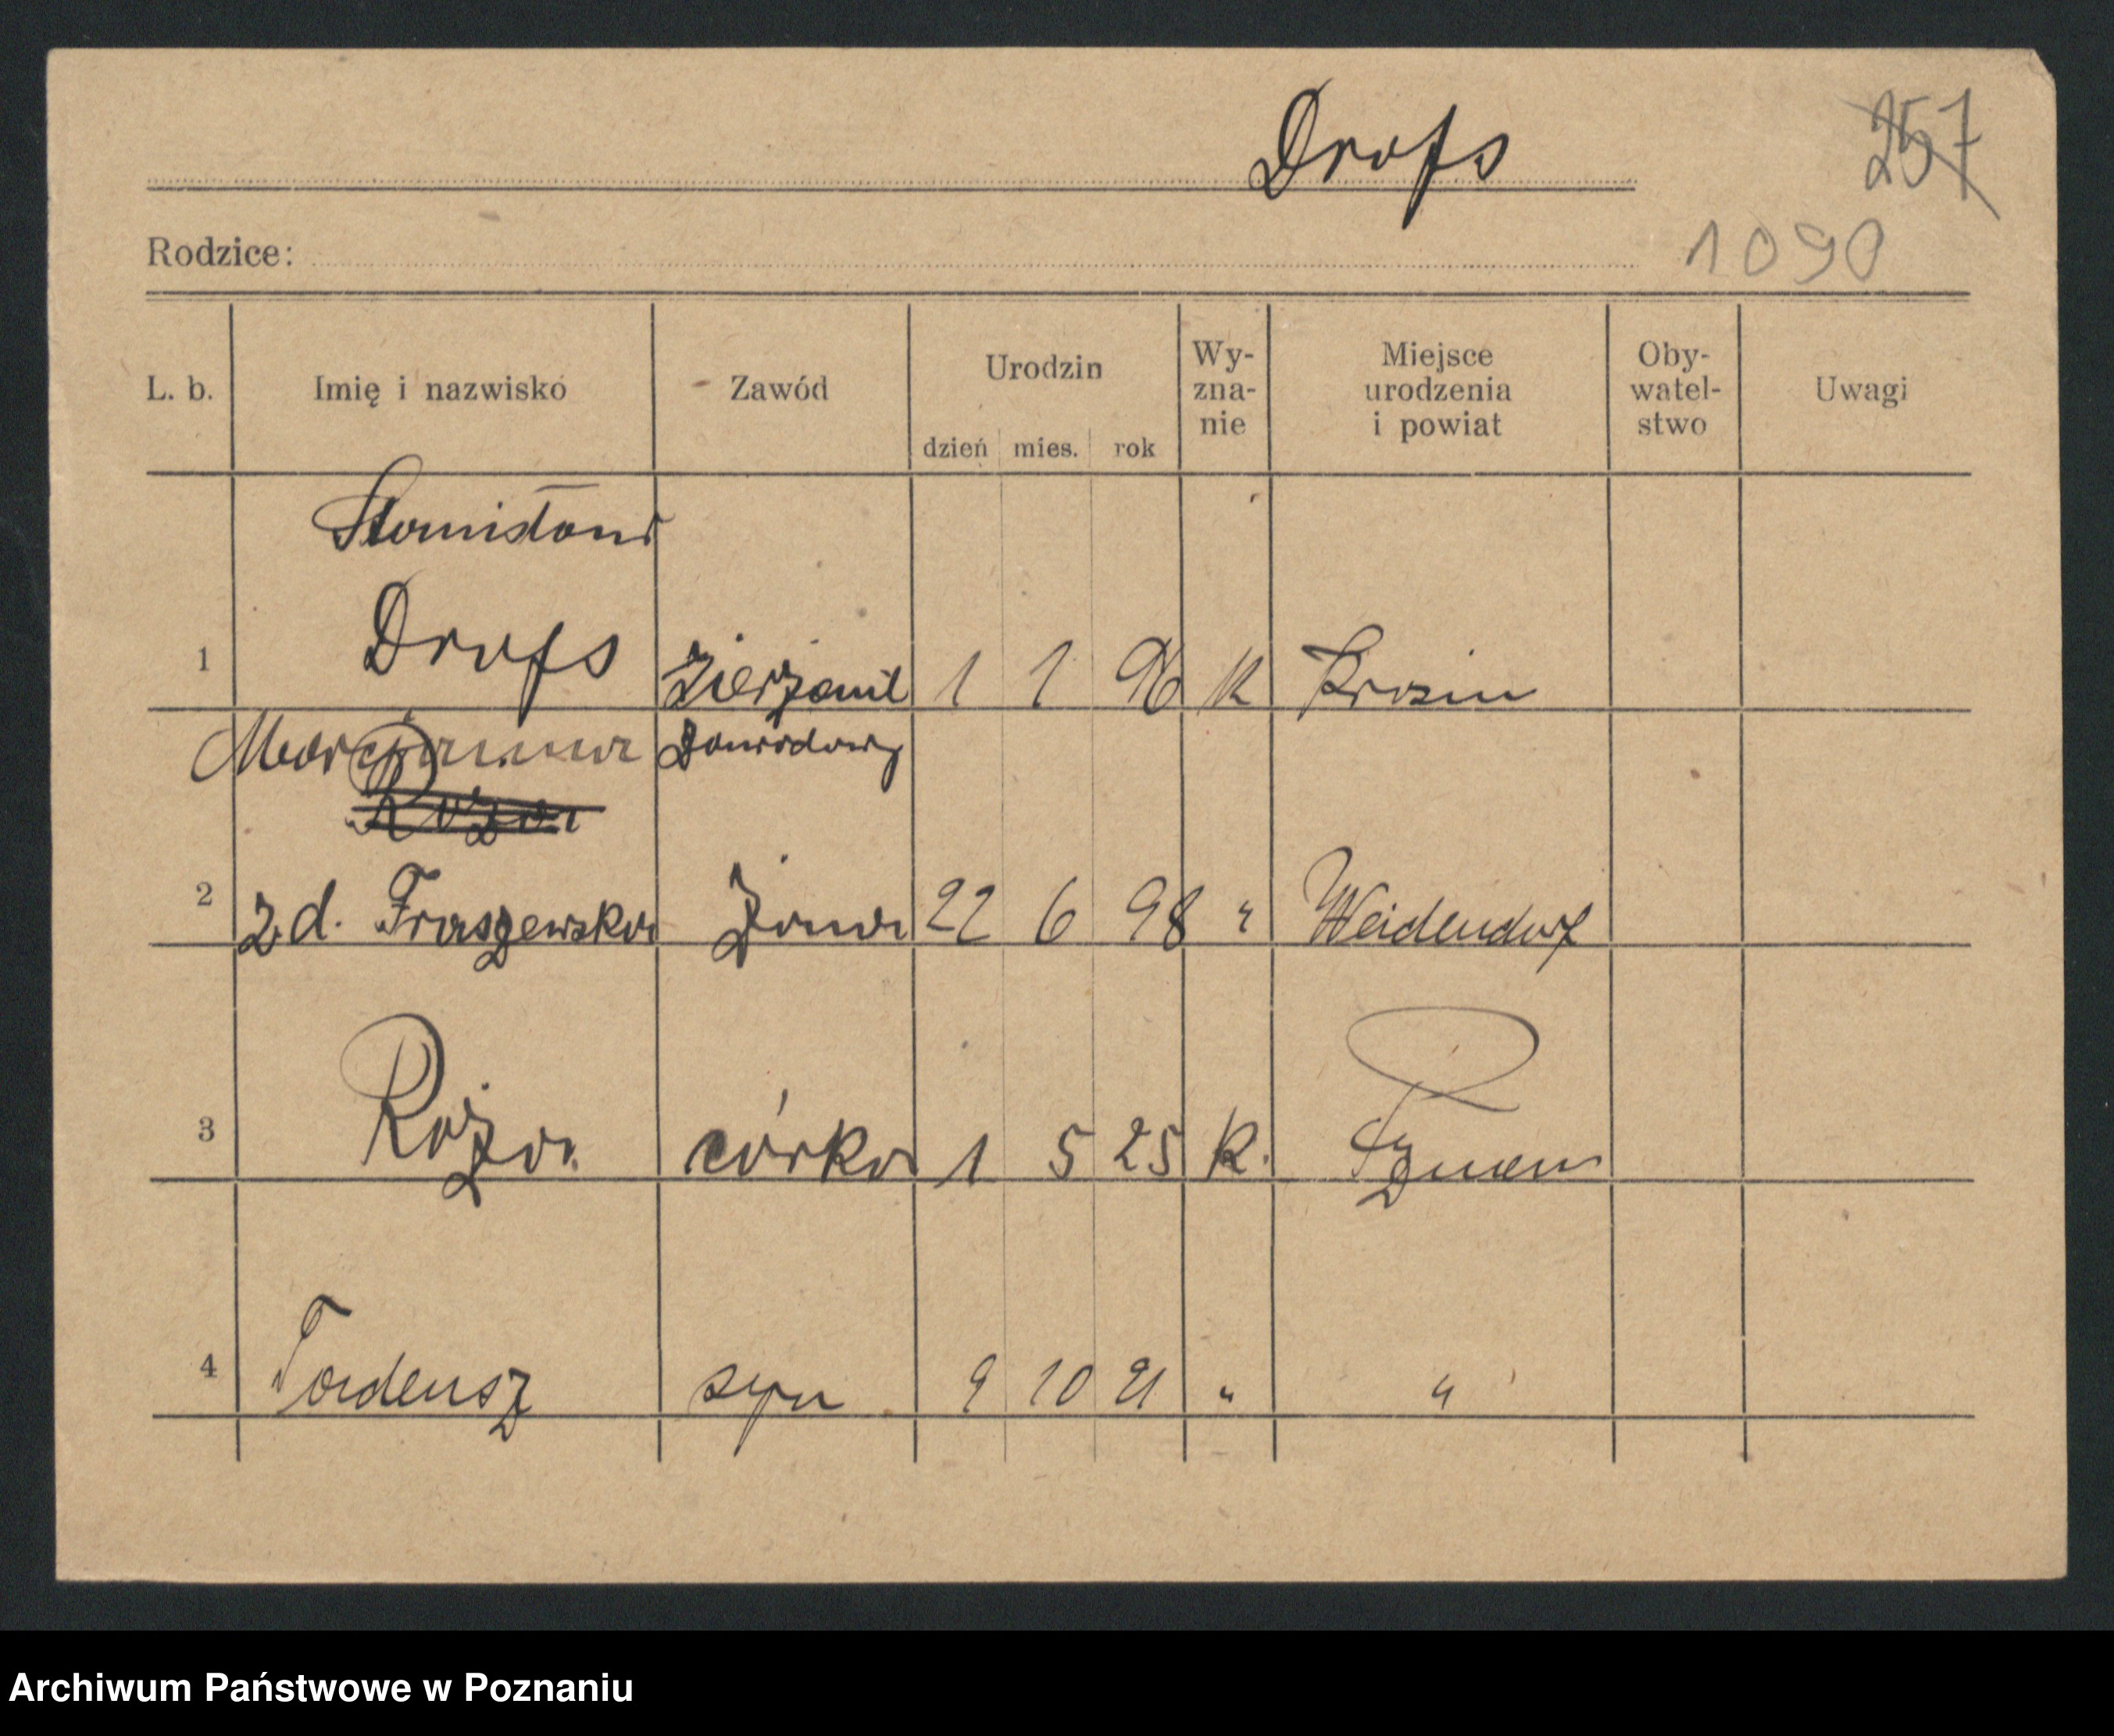 Drofs
257
Rodzice:
1090
L. b. Imię i nazwisko Zawód Urodzin dzień mies. rok Wy-zna-nie Miejsce urodzenia i powiat Oby-watel-stwo Uwagi
Stanisław
1 Drofs Sierżant 1 1 96 K Krosin
Marcjanna zawodowy
Róża
2 z d. Fraszewska żona 22 6 98 " Weidendorf
3 Róża córka 1 5 25 K.
4 Tadeusz syn 9 10 21 " "
Archiwum Państwowe w Poznaniu